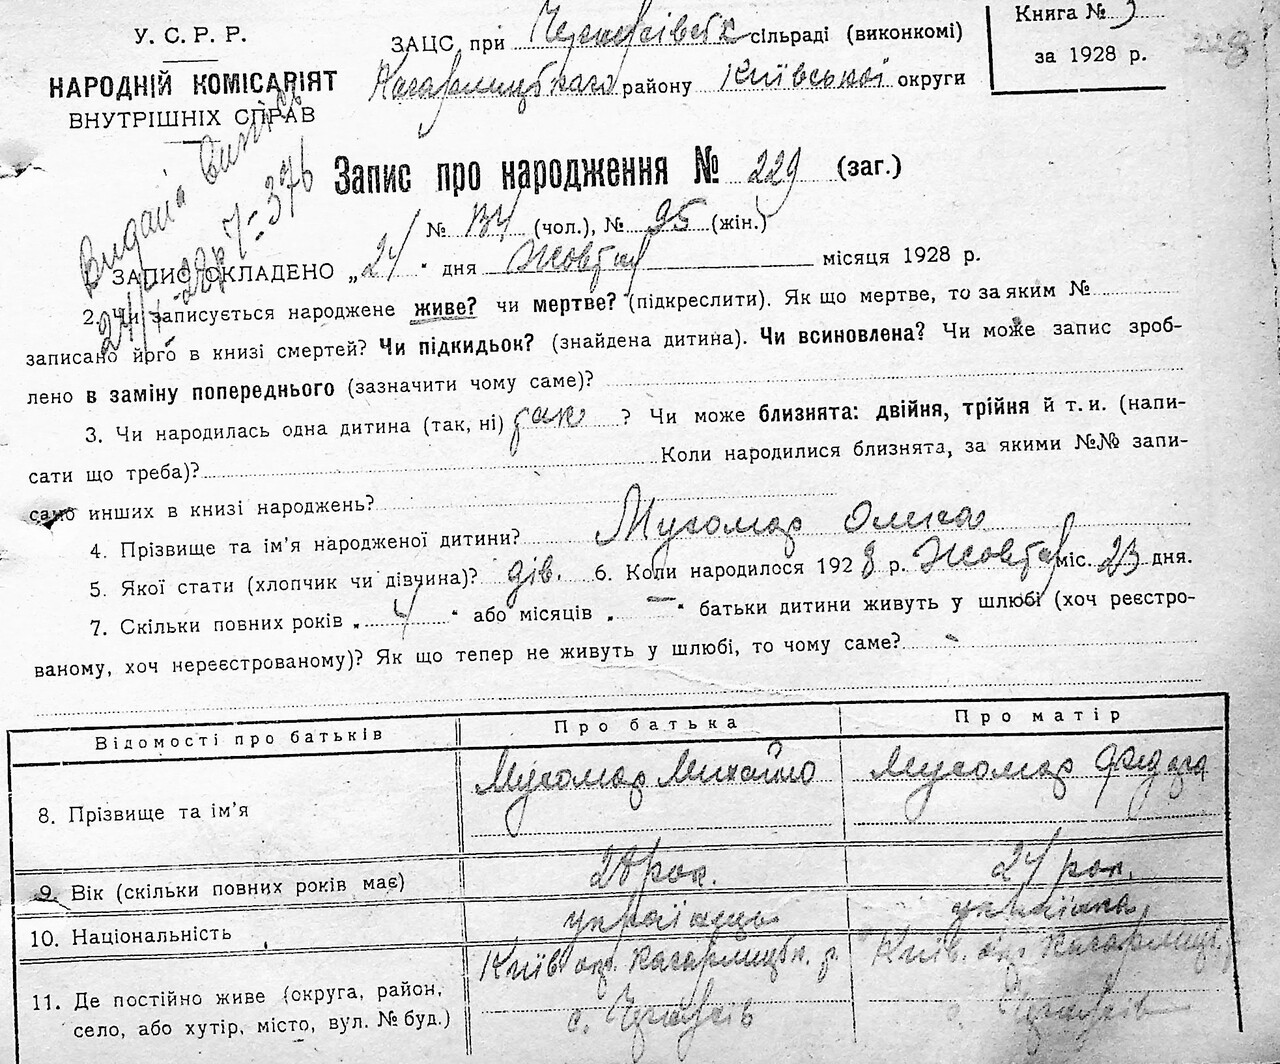 У. С. Р. Р.
НАРОДНІЙ КОМІСАРІЯТ
ВНУТРІШНІХ СПРАВ
ЗАЦС при сільраді (виконкомі)
Кагарлицького району Київської округи
Книга № 3
за 1928 р.
228
Видана
Запис про народження № 229 (заг.)
№ 134 (чол.), № 95 (жін.)
1. ЗАПИС СКЛАДЕНО „24“ дня Жовтня місяця 1928 р.
2. Чи записується народжене живе? чи мертве? (підкреслити). Як що мертве, то за яким №
записано його в книзі смертей? Чи підкидьок? (знайдена дитина). Чи всиновлена? Чи може запис зроб-
лено в заміну попереднього (зазначити чому саме)?
3. Чи народилась одна дитина (так, ні) так ? Чи може близнята: двійня, трійня й т. и. (напи-
сати що треба)? Коли народилися близнята, за якими №№ запи-
сано инших в книзі народжень?
4. Прізвище та ім’я народженої дитини? Мухомар Олена
5. Якої стати (хлопчик чи дівчина)? дів. 6. Коли народилося 1928 р. Жовтня міс. 23 дня.
7. Скільки повних років „ 4 “ або місяців „ — “ батьки дитини живуть у шлюбі (хоч реєстро-
ваному, хоч нереєстрованому)? Як що тепер не живуть у шлюбі, то чому саме?
Відомості про батьків Про батька Про матір
8. Прізвище та ім’я Мухомар Михайло Мухомар
9. Вік (скільки повних років має) 28 рок. 24 рок.
10. Національність українець українка
11. Де постійно живе (округа, район, Київ. окр. Кагарлицьк. р. Київ. окр. Кагарлиць.
село, або хутір, місто, вул. № буд.) с. с.